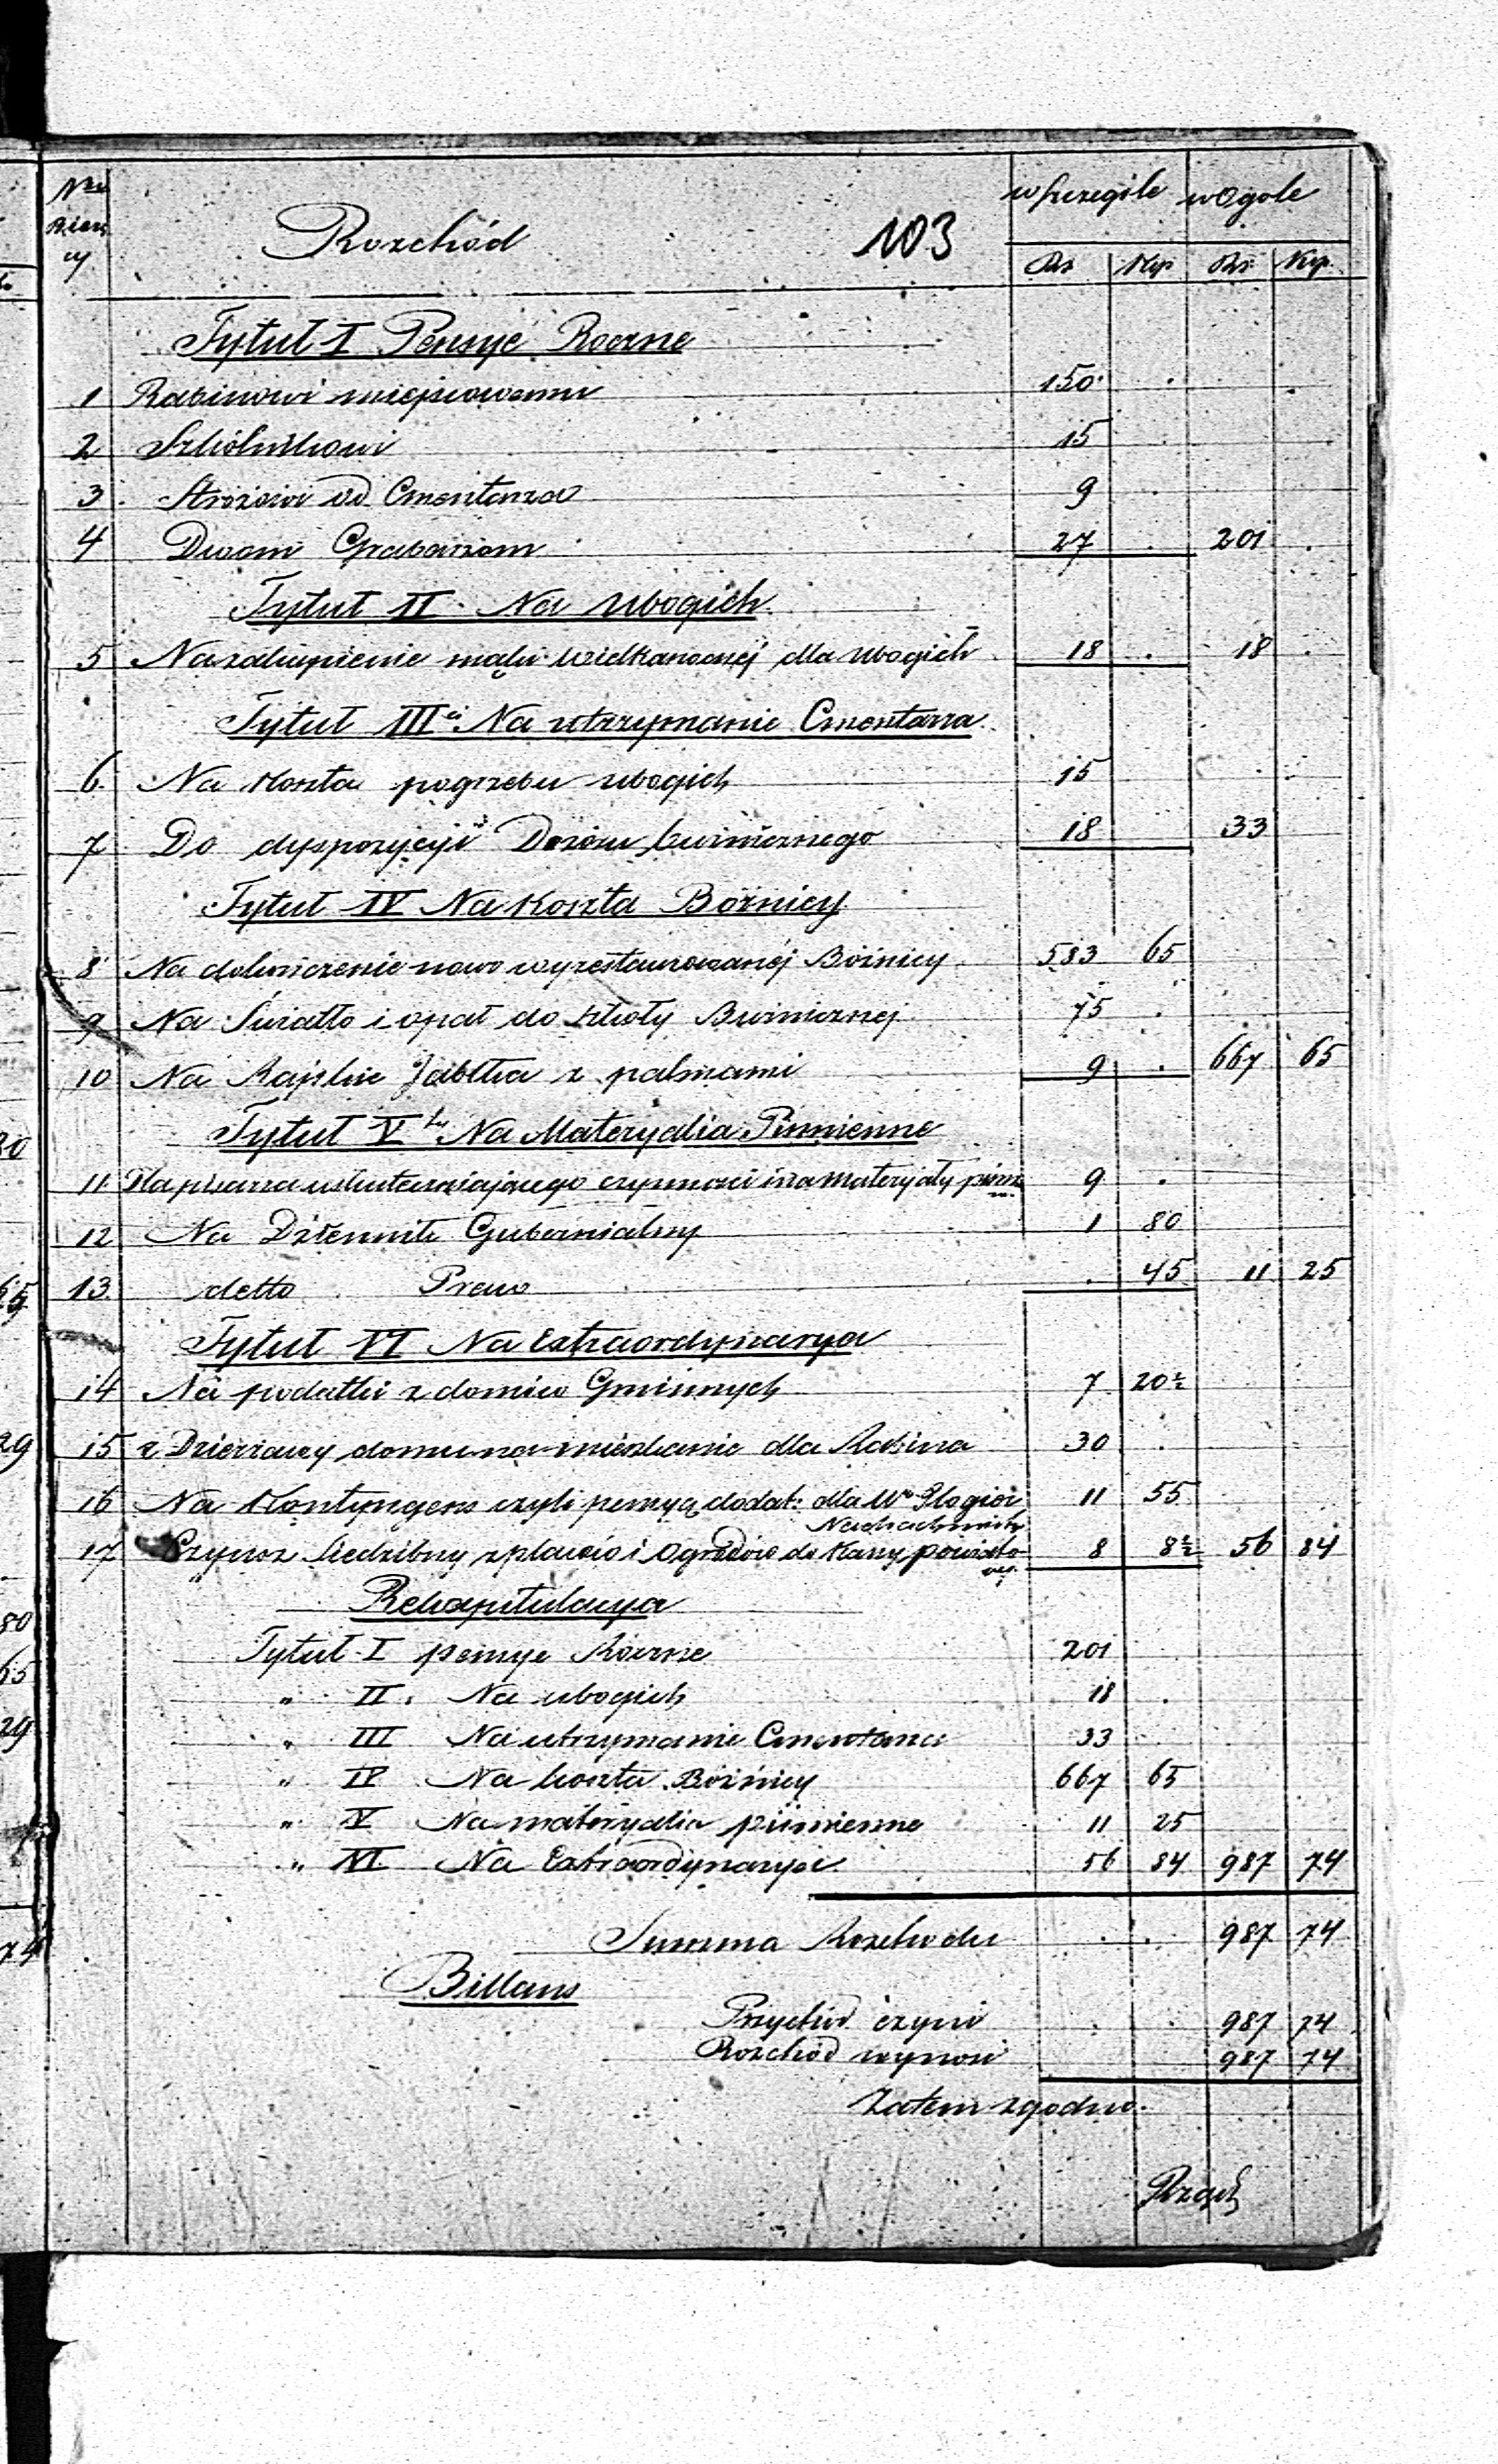 Nro bieżący Rozchód 103 w szczególe w Ogóle
Rs Kop Rs Kop.
Tytuł I Pensye Roczne
1 Rabinowi miejscowemu 150
2 Szkólnikowi 15
3 Stróżowi od Cmentarza 9
4 Dwom Grabarzom 27 201
Tytuł II Na ubogich
5 Na zakupienie mąki Wielkanocnéj dla ubogich 18 18
Tytuł III Na utrzymanie Cmentarza
6 Na Koszta pogrzebu ubogich 15
7 Do dyspozycyi Dozoru bużnicznego 18 33
Tytuł IV Na Koszta Bóżnicy
8 Na dokończenie nowo wyrestaurowanéj Bóżnicy 583 65
9 Na Światło i opał do szkoły Bużnicznej 75
10 Na Rajskie Jabłka z palmami 9 667 65
Tytuł V Na Materyalia Piśmienne
11 Dla pisarza uskuteczniającego czynności i na materyały piśm 9
12 Na Dziennik Gubernialny 1 80
13 detto Praw 45 11 25
Tytuł VI Na Extraordynarya
14 Na podatki z domów Gminnych 7 20½
15 z Dzierżawy domu na mieszkanie dla Rabina 30
16 Na Kontyngens czyli pensyą dodat: dla 11 55
17 Czynsz Siedzibny z placów i Ogrodów do Kassy powiatowej 8 8½ 56 84
Rekapitulacya
Tytuł I pensye Roczne 201
" II Na ubogich 18
" III Na utrzymanie Cmentarza 33
" IV Na koszta Bóżnicy 667 65
" V Na materyalia piśmienne 11 25
" VI Na Extraordynarya 56 84 987 74
Summa Rozchodu 987 74
Billans
Przychód czyni 987 74
Rozchód wynosi 987 74
Zatem zgodno.